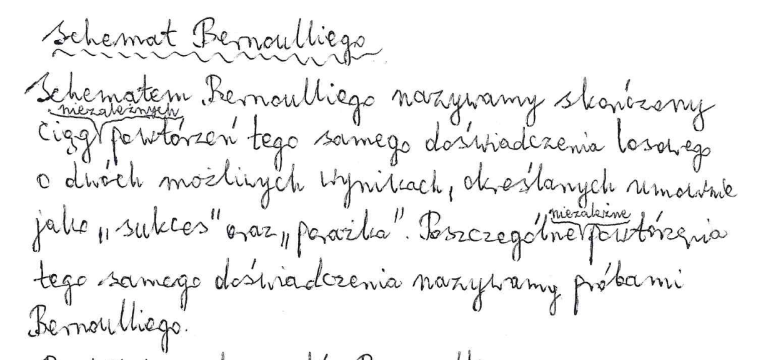 Schemat Bernoulliego
Schematem Bernoulliego nazywamy skończony
ciąg niezależnych powtórzeń tego samego doświadczenia losowego
o dwóch możliwych wynikach, określanych umownie
jako „sukces" oraz „porażka". Poszczególne niezależne powtórzenia
tego samego doświadczenia nazywamy próbami
Bernoulliego.